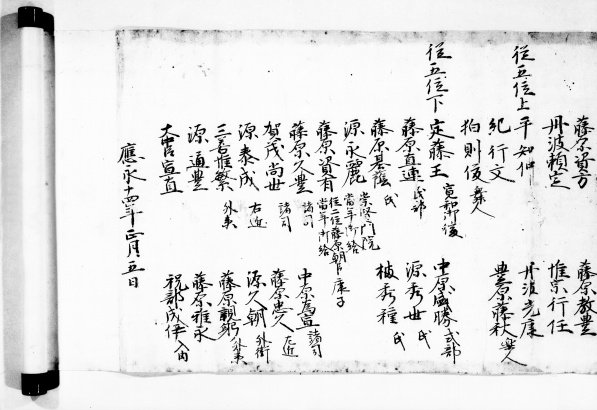 藤原資方　藤原教豊
丹波頼定　惟宗行任
従五位上　平知仲　丹波光康
紀行文　豊原藤秋　舞人
狛則俊　舞人
従五位下　定藤王　寛和御後　中原盛勝　式部
藤原直連　民部　源秀世　氏
藤原基蔭　氏　植秀種　氏
源永麗　崇賢門院当年御給
藤原資有　従二位藤原朝臣康子当年御給
藤原久豊　諸司　中原為宣　諸司
賀茂尚世　諸司　藤原忠久　左近
源泰成　右近　源久朝　外衛
三善惟繁　外夷　藤原親躬　外夷
源通豊　藤原雅永
大宮宣直　祝部成伊　入内
應永十四年正月五日